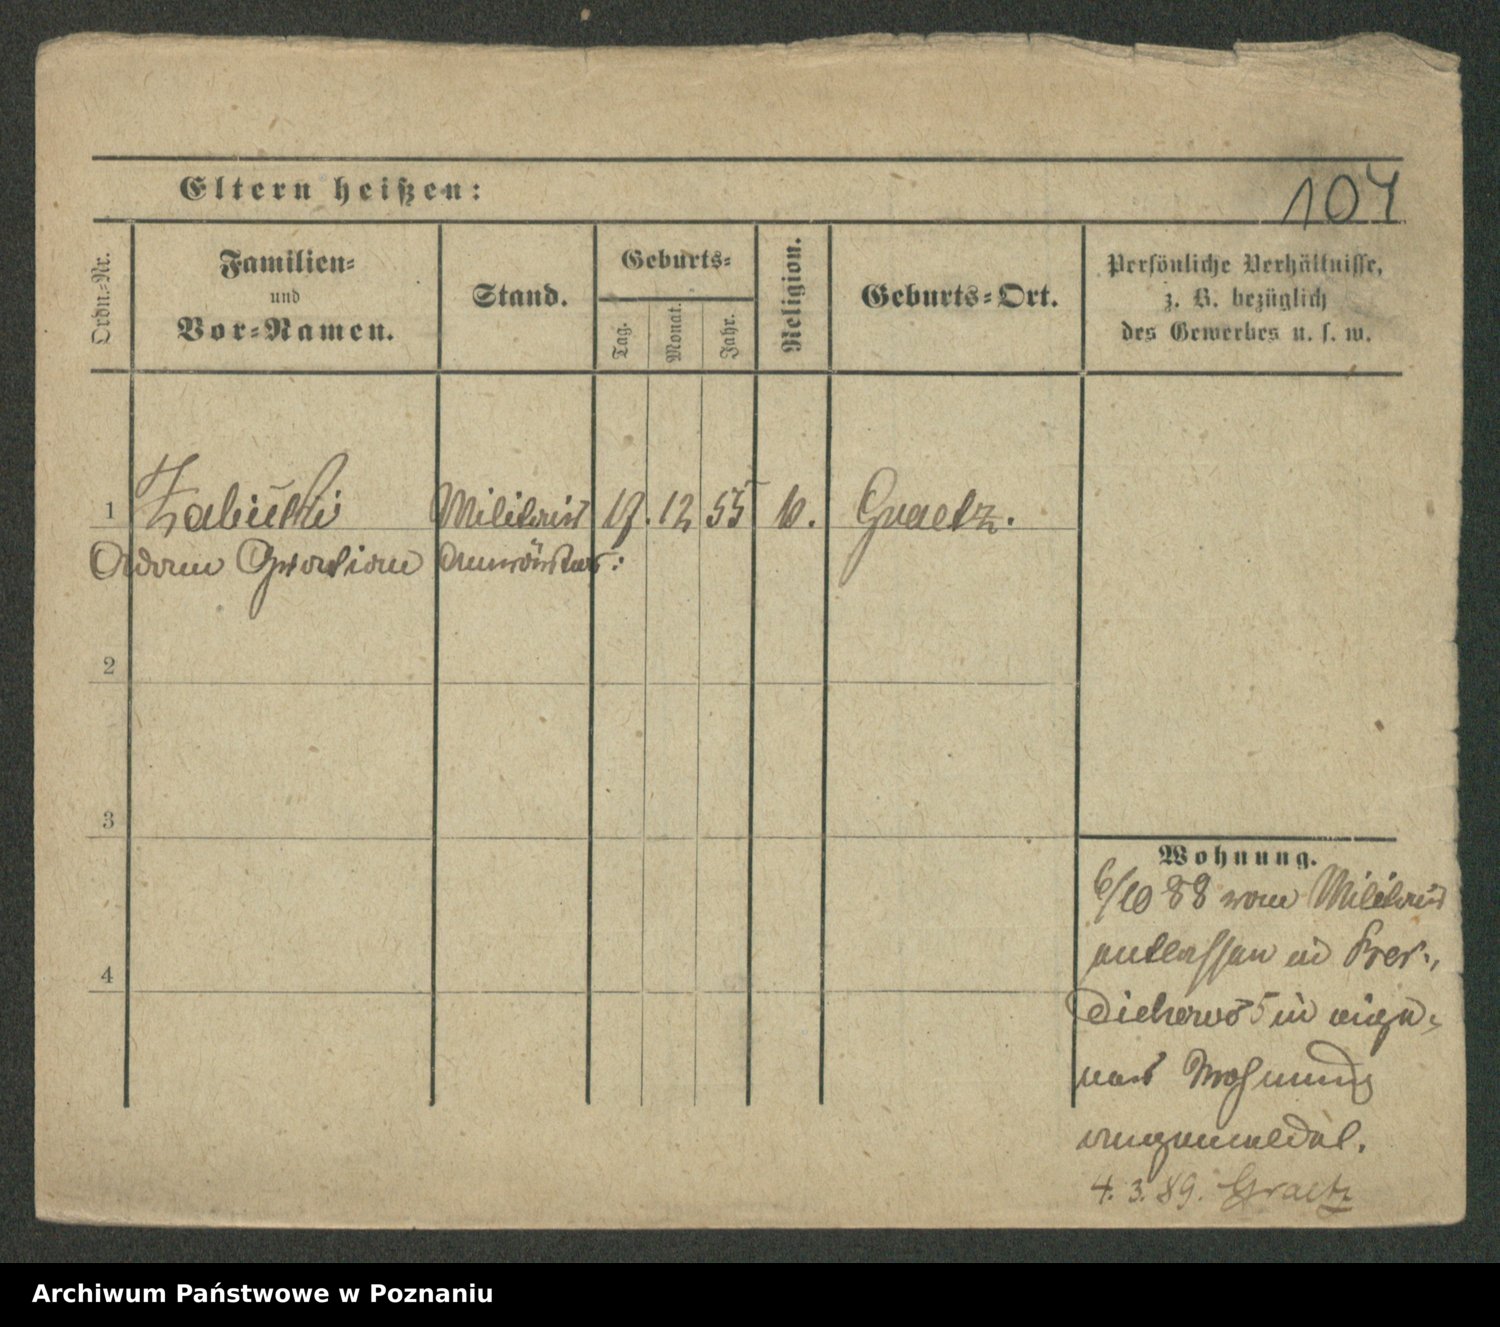 Eltern heißen:
107
Ordn.-Nr.
Familien-
und
Vor-Namen.
Stand.
Geburts-
Tag.
Monat.
Jahr.
Religion.
Geburts-Ort.
Persönliche Verhältnisse,
z. B. bezüglich
des Gewerbes u. s. w.
1
Militair 19. 12 55 Graetz.
Adam Gratian Anwärter:
2
3
4
Wohnung.
6/10 88 vom Militair
entlassen in
5 in eige-
ner Wohnung
angemeldet.
4. 3. 89. Graetz
Archiwum Państwowe w Poznaniu